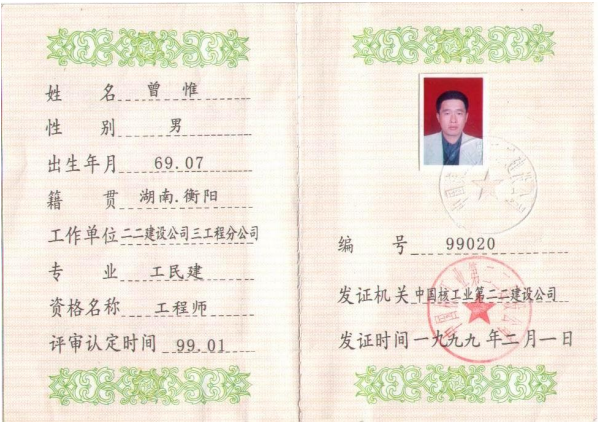 姓 名 曾 惟
性 别 男
出生年月 69.07
籍 贯 湖南.衡阳
工作单位 二二建设公司三工程分公司
专 业 工民建
资格名称 工程师
评审认定时间 99.01
编 号 99020
发证机关 中国核工业第二二建设公司
发证时间 一九九九年二月一日